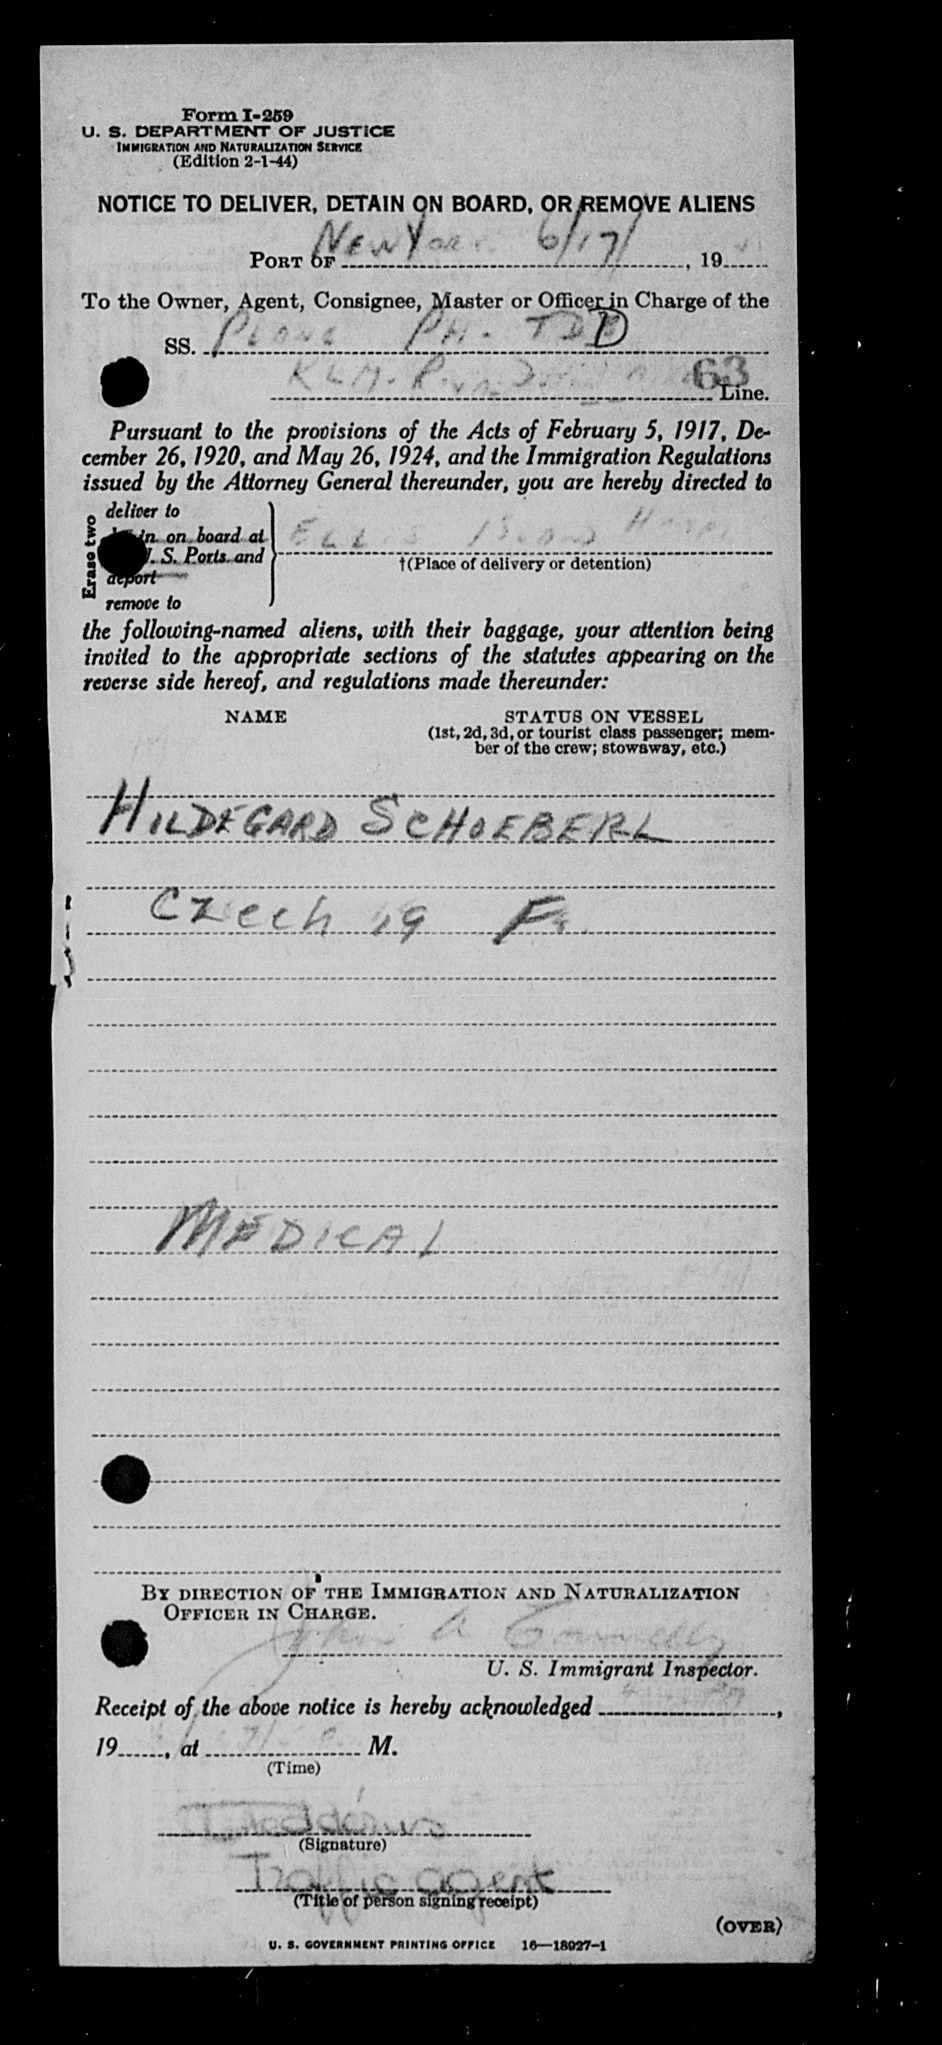 Form I-259
U. S. DEPARTMENT OF JUSTICE
IMMIGRATION AND NATURALIZATION SERVICE
(Edition 2-1-44)
NOTICE TO DELIVER, DETAIN ON BOARD, OR REMOVE ALIENS
PORT OF New York 6/17/, 19
To the Owner, Agent, Consignee, Master or Officer in Charge of the
SS. Plane PH-TDD
KLM- 63
Line.
Pursuant to the provisions of the Acts of February 5, 1917, De-
cember 26, 1920, and May 26, 1924, and the Immigration Regulations
issued by the Attorney General thereunder, you are hereby directed to
Erase two
deliver to
in on board at
S. Ports and
deport
remove to
ELLIS Island Hosp.
†(Place of delivery or detention)
the following-named aliens, with their baggage, your attention being
invited to the appropriate sections of the statutes appearing on the
reverse side hereof, and regulations made thereunder:
NAME STATUS ON VESSEL
(1st, 2d, 3d, or tourist class passenger; mem-
ber of the crew; stowaway, etc.)
HILDEGARD SCHOEBERL
Czech 19 F
MEDICAL
BY DIRECTION OF THE IMMIGRATION AND NATURALIZATION
OFFICER IN CHARGE.
John A Connelly
U. S. Immigrant Inspector.
Receipt of the above notice is hereby acknowledged ,
19 , at M.
(Time)
(Signature)
Traffic agent
(Title of person signing receipt)
(OVER)
U. S. GOVERNMENT PRINTING OFFICE 16—18027-1